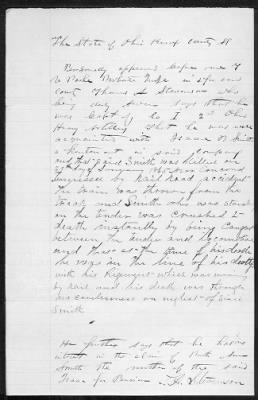 The State of Ohio Knox County SS
Personally appeared before me J
Public in & for said
County Thomas A Stevenson who
being duly sworn says that he
was Capt of Co I 2nd Ohio
Heavy Artillery that he was well
acquainted with Isaac Smith
a in said company
and that said Smith was killed on
day of near
Tennessee by Rail Road accident
the train was thrown from the
track and Smith who was standing
on the tender was crushed to
death instantly by being caught
between the tender and locomotive
and that at the time of his death
he was in the line of his duty
with his Regiment which was moving
by rail and his death was through
no carelessness or neglect of said
Smith
He further says that he has no
interest in the claim of Ruth Ann
Smith the mother of the said
Isaac for Pension
Stevenson